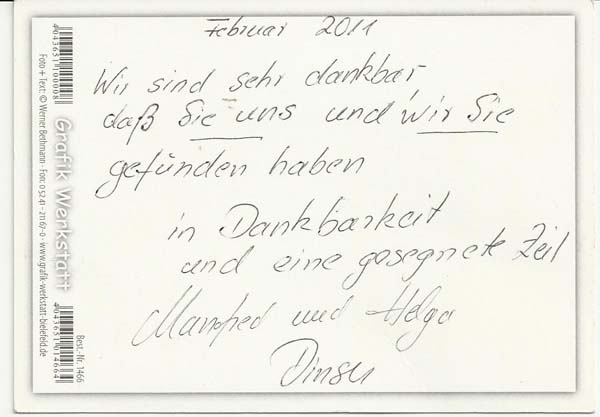 Februar 2011
Wir sind sehr dankbar,
daß Sie uns und wir Sie
gefunden haben
in Dankbarkeit
und eine gesegnete Zeit
Manfred und Helga
4043651100008
Foto + Text: © Werner Bethmann · Fon: 0 52 41 - 211 67-0 · www.grafik-werkstatt-bielefeld.de
Grafik Werkstatt
Best.-Nr. 1466
4043651014664